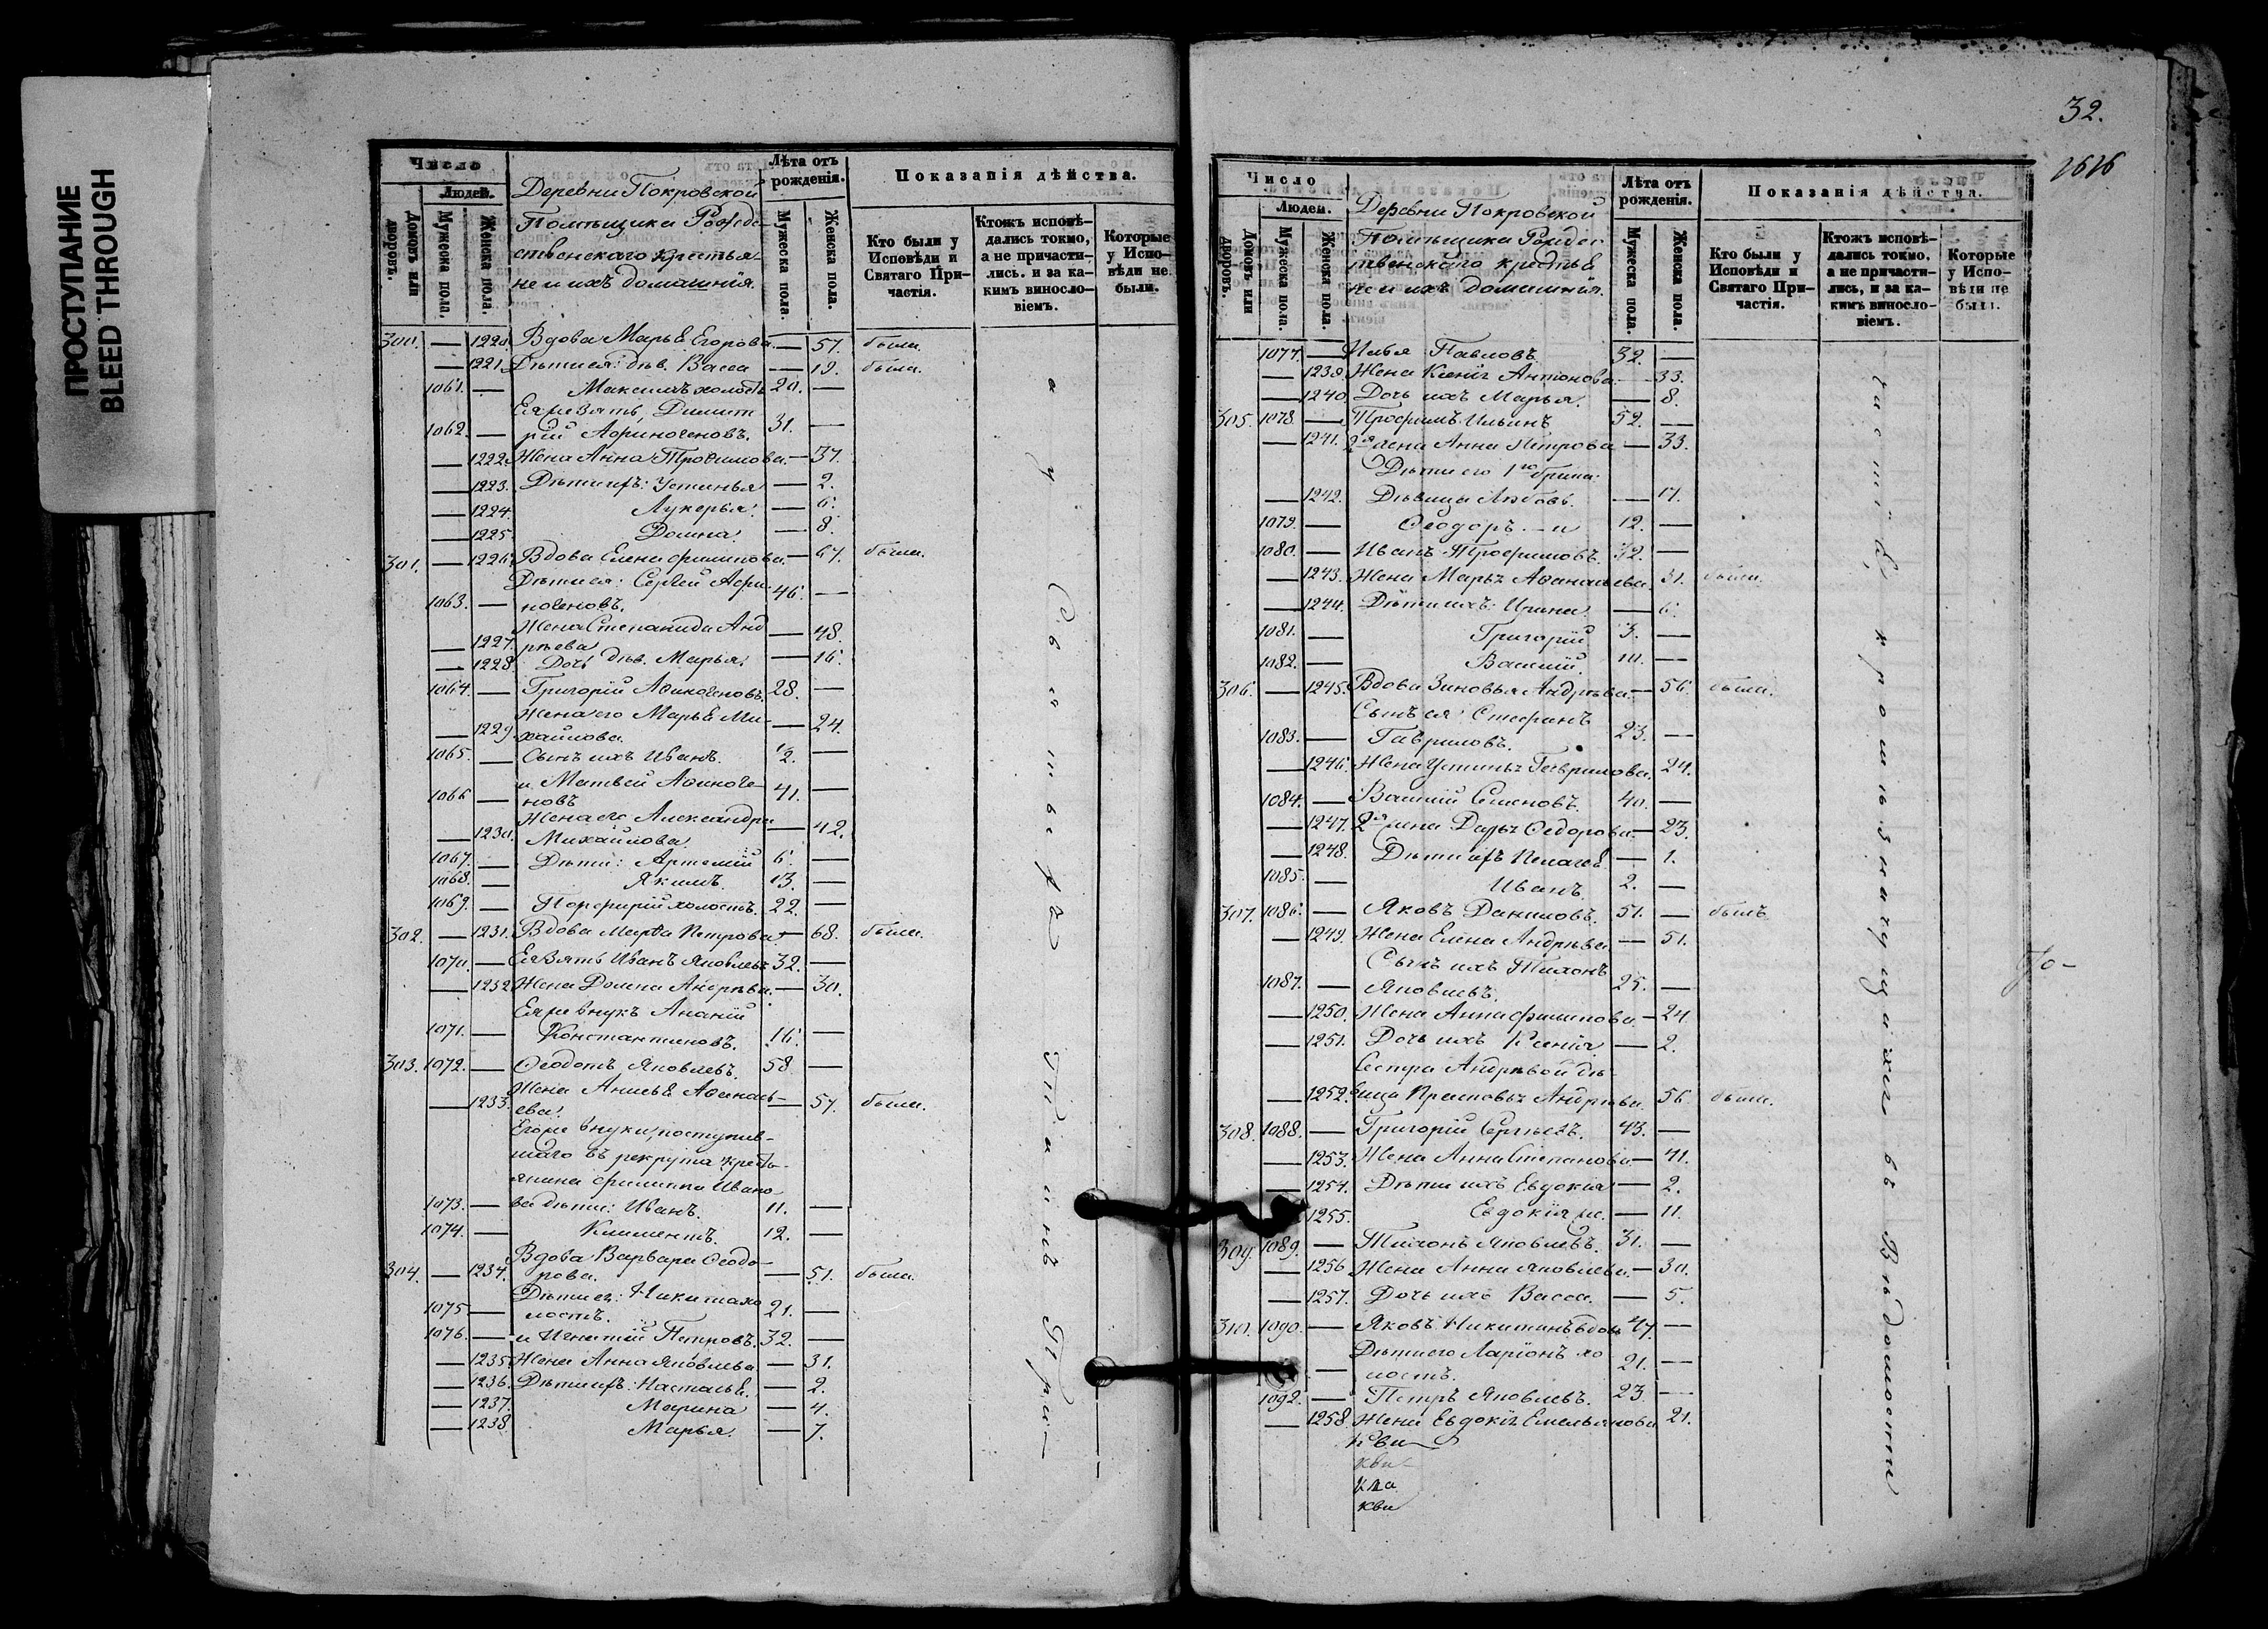 ПРОСТУПАНИЕ
BLEED THROUGH
Число
Людей.
Домовъ или дворовъ.
Мужеска пола.
Женска пола.
Деревни Покровской
Помѣщика Рожде-
ственскаго крестья-
не и ихъ домашнія.
Лѣта отъ рожденія.
Мужеска пола.
Женска пола.
Показанія дѣйства.
Кто были у Исповѣди и Святаго Причастія.
Ктожъ исповѣдались токмо, а не причастились. и за какимъ винословіемъ.
Которые у Исповѣди не были.
300. — 1220. Вдова Марья Егорова — 57. была.
— 1221. Дѣти ея: дѣв. Васса — 19. была.
1061. — Максимъ холостъ 20. —
Ея же зять Димит
1062. — рій Афиногеновъ. 31. —
— 1222. Жена Анна Трофимова. — 37.
— 1223. Дѣти ихъ: Устинья — 2.
— 1224. Лукерья. — 6.
— 1225. Домна. — 8.
301. — 1226. Вдова Елена Филипова. — 67. была.
Дѣти ея: Сергѣй Афи-
1063. — ногеновъ. 46. —
Жена Степанида Анд
— 1227. рѣева — 48.
— 1228. Дочь дѣв. Марья. — 16.
1064. — Григорій Афиногеновъ. 28. —
Жена его Марья Ми-
— 1229. хайлова. — 24.
1065. — Сынъ ихъ Иванъ. ½. —
1066 — и Матвей Афиноге-
новъ 41. —
Жена его Александра
— 1230. Михайлова. — 42.
1067. — Дѣти: Артемій 6. —
1068. — Якимъ. 13. —
1069. — Порфирій холостъ. 22. —
302. — 1231. Вдова Марѳа Петрова — 68. была.
1070. — Ея зять Иванъ Яковлевъ 32. —
— 1232 Жена Домна Андрѣева. — 30.
Ея же внукъ Ананій
1071. — Константиновъ. 16. —
303. 1072. — Ѳеодотъ Яковлевъ. 58 —
Жена Анисья Аѳанась-
— 1233. ева. — 57. была.
Его же внуки, поступив-
шаго въ рекрута кресть-
янина Филиппа Ивано
1073. — ва дѣти: Иванъ. 11. —
1074. — Климентъ. 12. —
Вдова Варвара Ѳеодо-
304. — 1234. рова. — 51. была.
Дѣти ея: Никита хо
1075 — лостъ. 21. —
1076. — и Игнатій Петровъ. 32. —
— 1235. Жена Анна Яковлева — 31.
— 1236. Дѣти ихъ: Настасья. — 2.
— 1237. Марина — 4.
— 1238. Марья. — 7.
а у Св. отцевъ
32.
1616
Число
Людей.
Домовъ или дворовъ.
Мужеска пола.
Женска пола.
Деревни Покровской
Помѣщика Рождес
твенскаго крестья
не и ихъ домашнія.
Лѣта отъ рожденія.
Мужеска пола.
Женска пола.
Показанія дѣйства.
Кто были у Исповѣди и Святаго Причастія.
Ктожъ исповѣдались токмо, а не причастились, и за какимъ винословіемъ.
Которые у Исповѣди не были.
1077. — Илья Павловъ 32. —
— 1239. Жена Ксенія Антонова. — 33.
— 1240. Дочь ихъ Марья. — 8.
305. 1078. — Трофимъ Ильинъ 52. —
— 1241. 2я жена Анна Петрова — 33.
Дѣти его 1го брака:
— 1242. Дѣвица Любовь. — 17.
1079. — Ѳеодоръ. — и 12. —
1080. — Иванъ Трофимовъ. 32. —
— 1243. Жена Марья Аѳанасьева. 31. была.
— 1244. Дѣти ихъ: Ирина — 6.
1081. — Григорій 3. —
1082. — Василій. 10. —
306. — 1245. Вдова Зиновья Андрѣева. — 56. была.
Сынъ ея: Стефанъ
1083. — Гавриловъ. 23. —
— 1246. Жена Устинья Гаврилова. 24.
1084. — Василій Семеновъ. 40. —
— 1247. 2я жена Дарья Ѳедорова. — 23.
— 1248. Дѣти ихъ Пелагея — 1.
1085. — Иванъ 2. —
307. 1086. — Яковъ Даниловъ. 51. — былъ
— 1249. Жена Елена Андрѣева — 51.
Сынъ ихъ Тихонъ
1087. — Яковлевъ. 25. —
— 1250. Жена Анна Филипова — 24
— 1251. Дочь ихъ Ксенія — 2.
Сестра Андрѣвой дѣ-
— 1252. вица Прасковья Андрѣева. 56. была.
308. 1088. — Григорій Сергѣевъ. 43. —
— 1253. Жена Анна Степанова — 41.
— 1254. Дѣти ихъ Евдокія — 2.
1255. Евдокія же. — 11.
309. 1089. — Тихонъ Яковлевъ. 31. —
— 1256 Жена Анна Яковлева — 30.
— 1257. Дочь ихъ Васса. — 5.
310. 1090. — Яковъ Никитинъ вдовъ 47. —
Дѣти его Ларіонъ хо
— лостъ. 21. —
1092. — Петръ Яковлевъ. 23 —
— 1258. Жена Евдокія Емельянова 21.
частія, кромѣ значущихся въ Вѣдомости